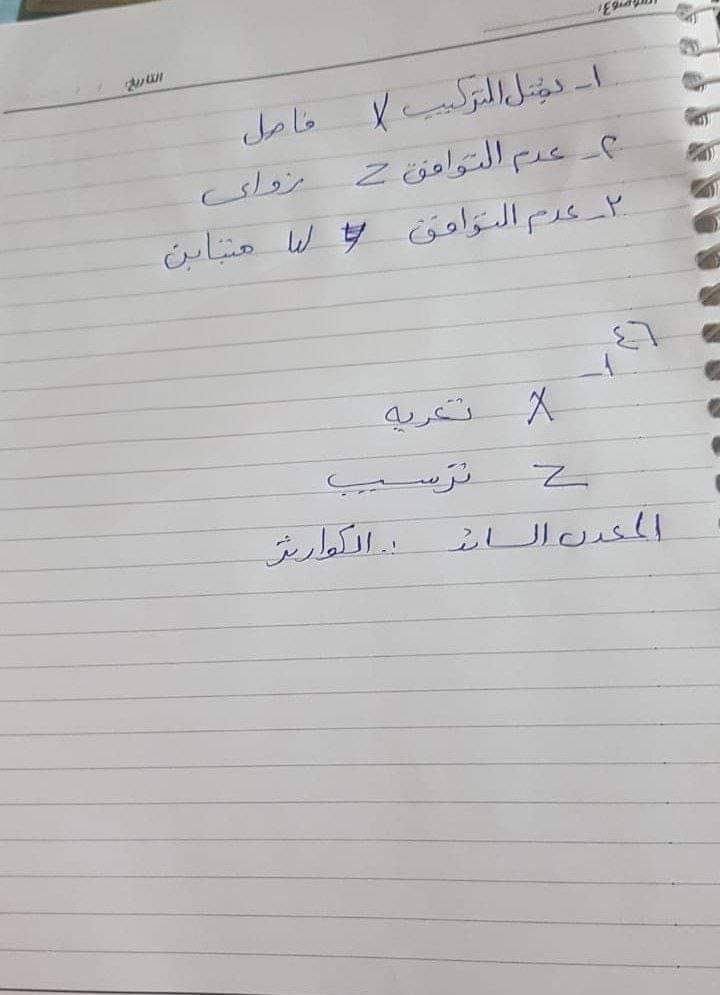 الموضوع:
التاريخ:
١- يمثل التركيب X فاصل
٢- عدم التوافق Z زواى
٢- عدم التوافق W متباين
٤٦
١-
X تعريه
Z ترسيب
المعدن السائد :. الكوارتز